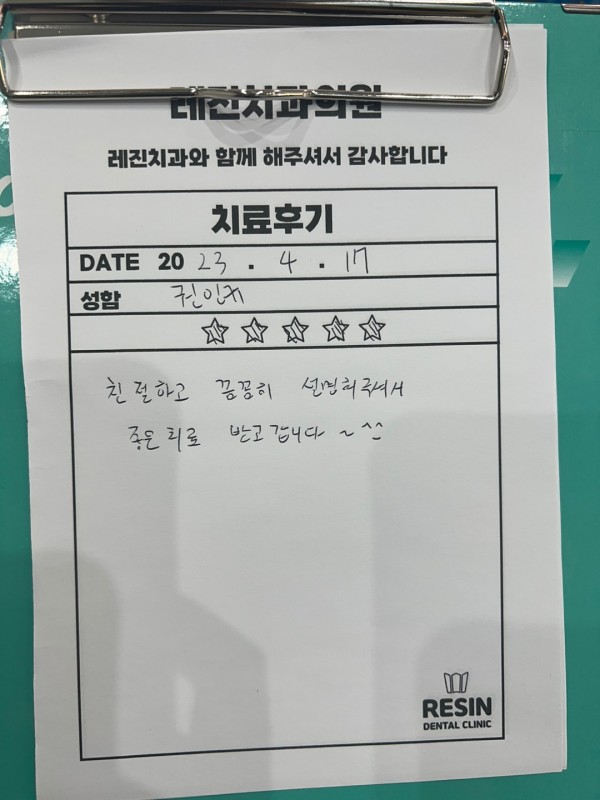 레진치과의원
레진치과와 함께 해주셔서 감사합니다
치료후기
DATE 2023.4.17
성함
친절하고 꼼꼼히 설명해주셔서
좋은 치료 받고 갑니다 ~ ^^
RESIN
DENTAL CLINIC